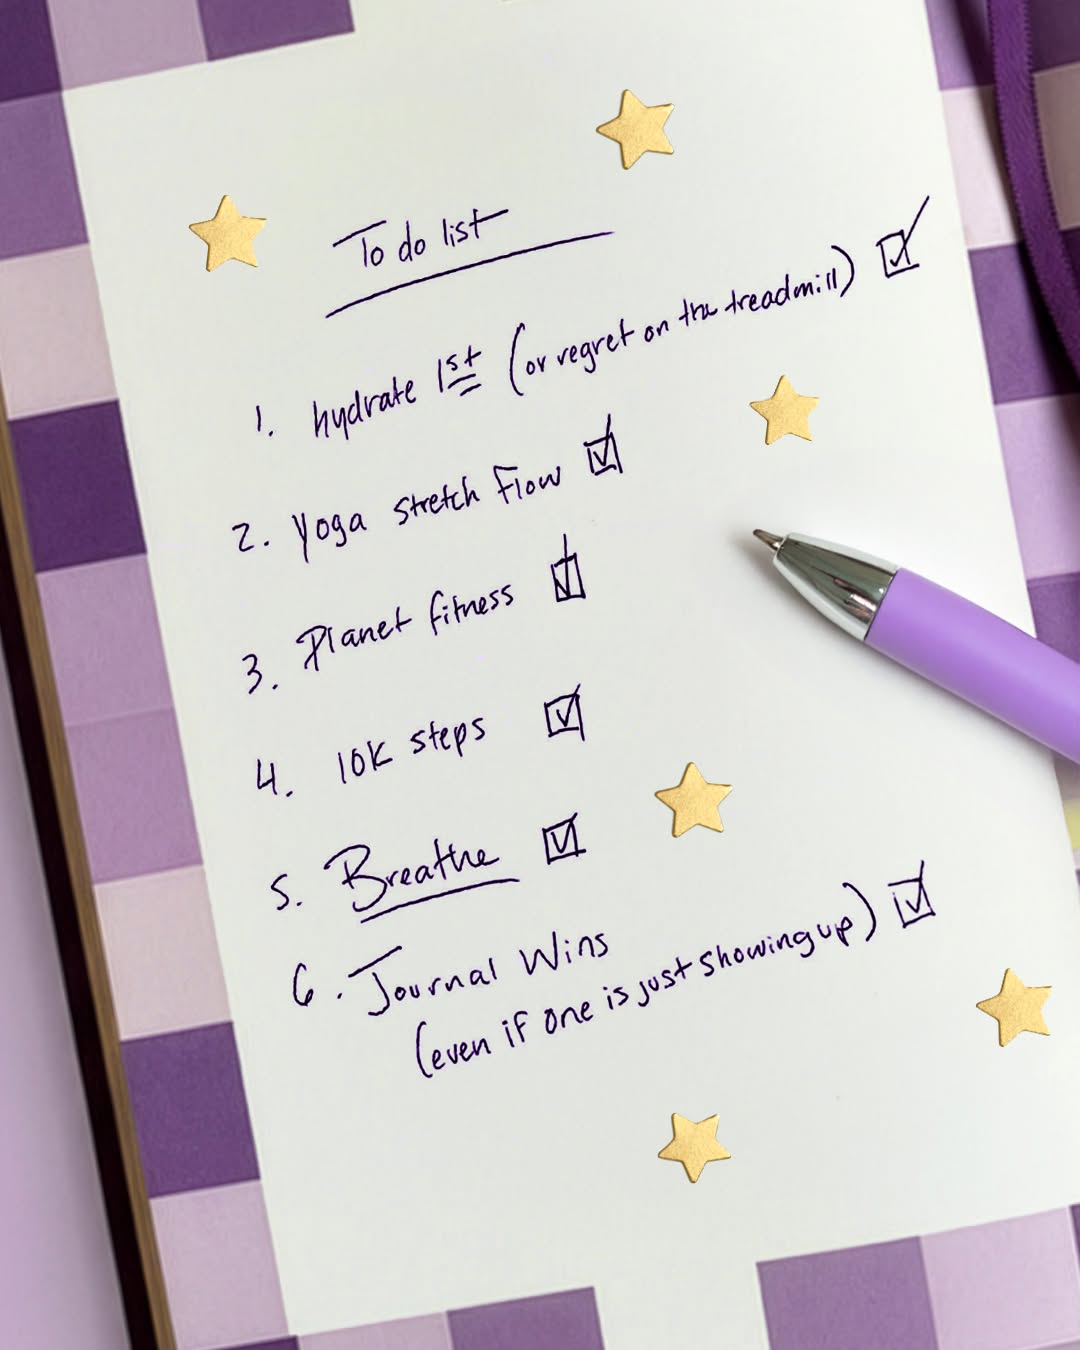 To do list
1. hydrate 1st (or regret on the treadmill)
2. Yoga stretch Flow
3. Planet fitness
4. 10K steps
5. Breathe
6. Journal Wins
(even if one is just showing up)